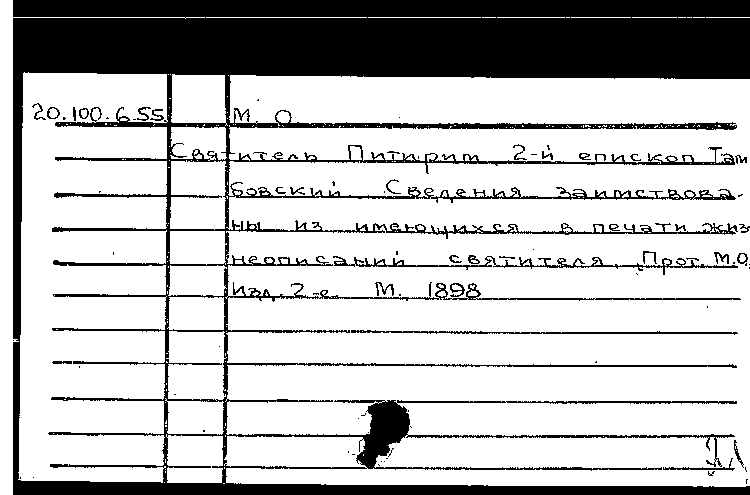 20.100.6.55 М. О.
Святитель Питирим, 2-й епископ Там
бовский. Сведения заимствова-
ны из имеющихся в печати жиз
неописаний святителя. Прот. М.О.
Изд. 2-е. М., 1898